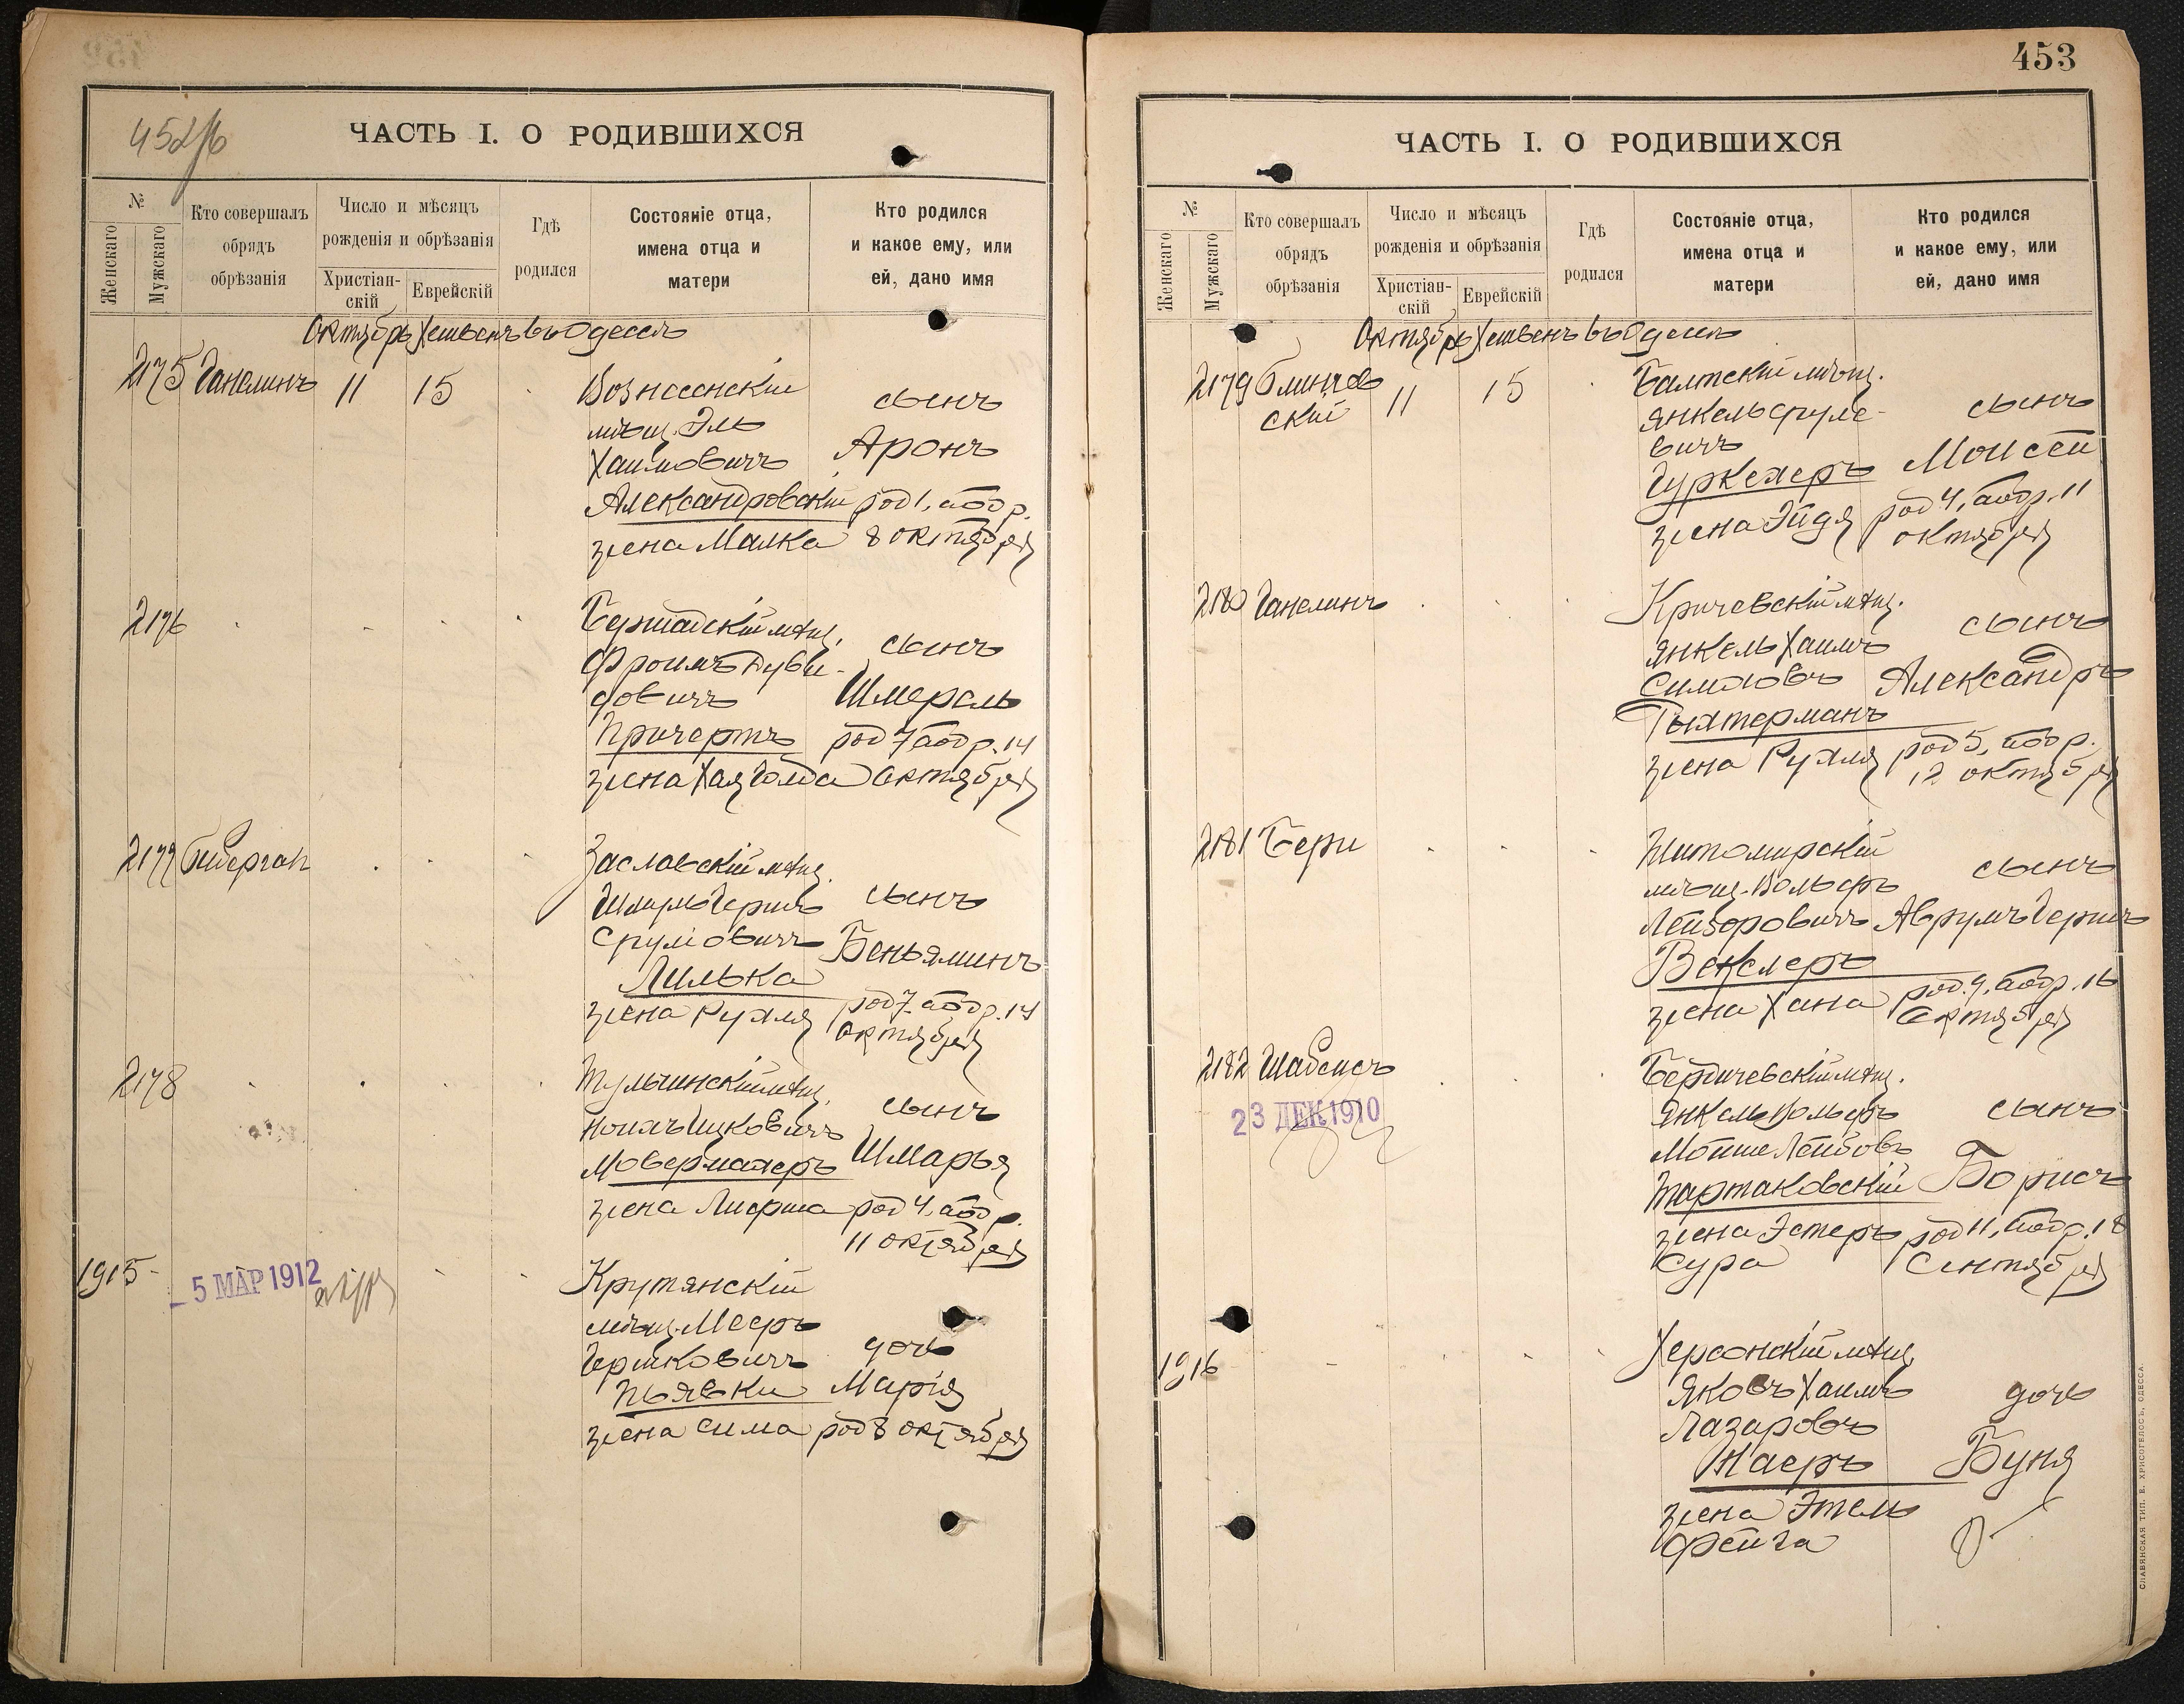 452/б
ЧАСТЬ I. О РОДИВШИХСЯ
№
Женскаго
Мужскаго
Кто совершалъ
обрядъ
обрѣзанія
Число и мѣсяцъ
рожденія и обрѣзанія
Христіан-
скій
Еврейскій
Гдѣ
родился
Состояніе отца,
имена отца и
матери
Кто родился
и какое ему, или
ей, дано имя
Октябрь Хешвенъ въ Одессѣ
2175 Ганелинъ 11 15
Вознесенскій
мѣщ. Эль
Хаимовичъ
Александровскій
жена Малка
сынъ
Аронъ
род 1, а обр.
8 октября
2176
Бершадскій мѣщ.
Фроимъ Дуви-
довичъ
Причертъ
жена Хая Голда
сынъ
Шмерель
род 7 а обр. 14
Октября
2177
Заславскій мѣщ.
Шмуль Гершъ
Сруліовичъ
Лилька
жена Рухля
сынъ
Беньяминъ
род 7 а обр. 14
Октября
2178
Тульчинскій мѣщ.
Ицковичъ
жена
сынъ
Шмарья
род 4, а обр.
11 октября
1915
5 МАР 1912
Крутянскій
мѣщ. Мееръ
Гершковичъ
Пьявки
жена Сима
дочь
Марія
род 8 октября
453
ЧАСТЬ I. О РОДИВШИХСЯ
№
Женскаго
Мужскаго
Кто совершалъ
обрядъ
обрѣзанія
Число и мѣсяцъ
рожденія и обрѣзанія
Христіан-
скій
Еврейскій
Гдѣ
родился
Состояніе отца,
имена отца и
матери
Кто родился
и какое ему, или
ей, дано имя
Октябрь Хешвенъ въ Одессѣ
2179 11 15
скій
Балтскій мѣщ.
Янкель Сруле-
вичъ
жена Эйдя
сынъ
Моисей
род 4, а обр. 11
октября
2180 Ганелинъ
Кричевскій мѣщ.
Янкель Хаимъ
Симоновъ
Тыхтерманъ
жена Рухля
сынъ
Александръ
род 5, а обр.
12 октября
2181 Бери
Житомирскій
мѣщ. Вольфъ
Лейзоровичъ
Векслеръ
жена Хана
сынъ
Аврумъ Гершъ
род. 9, а обр. 16
Октября
2182 Шабсисъ
23 ДЕК 1910
Бердичевскій мѣщ.
Янкель Вольфъ
Мойше Лейбовъ
Тартаковскій
жена Эстеръ
Сура
сынъ
Борисъ
род 11, а обр. 18
Сентября
1916
Херсонскій мѣщ.
Яковъ Хаимъ
Лазаровъ
жена Этель
Фейга
дочь
Буня
СЛАВЯНСКАЯ ТИП. Е. ХРИСОГЕЛОСЪ, ОДЕССА.